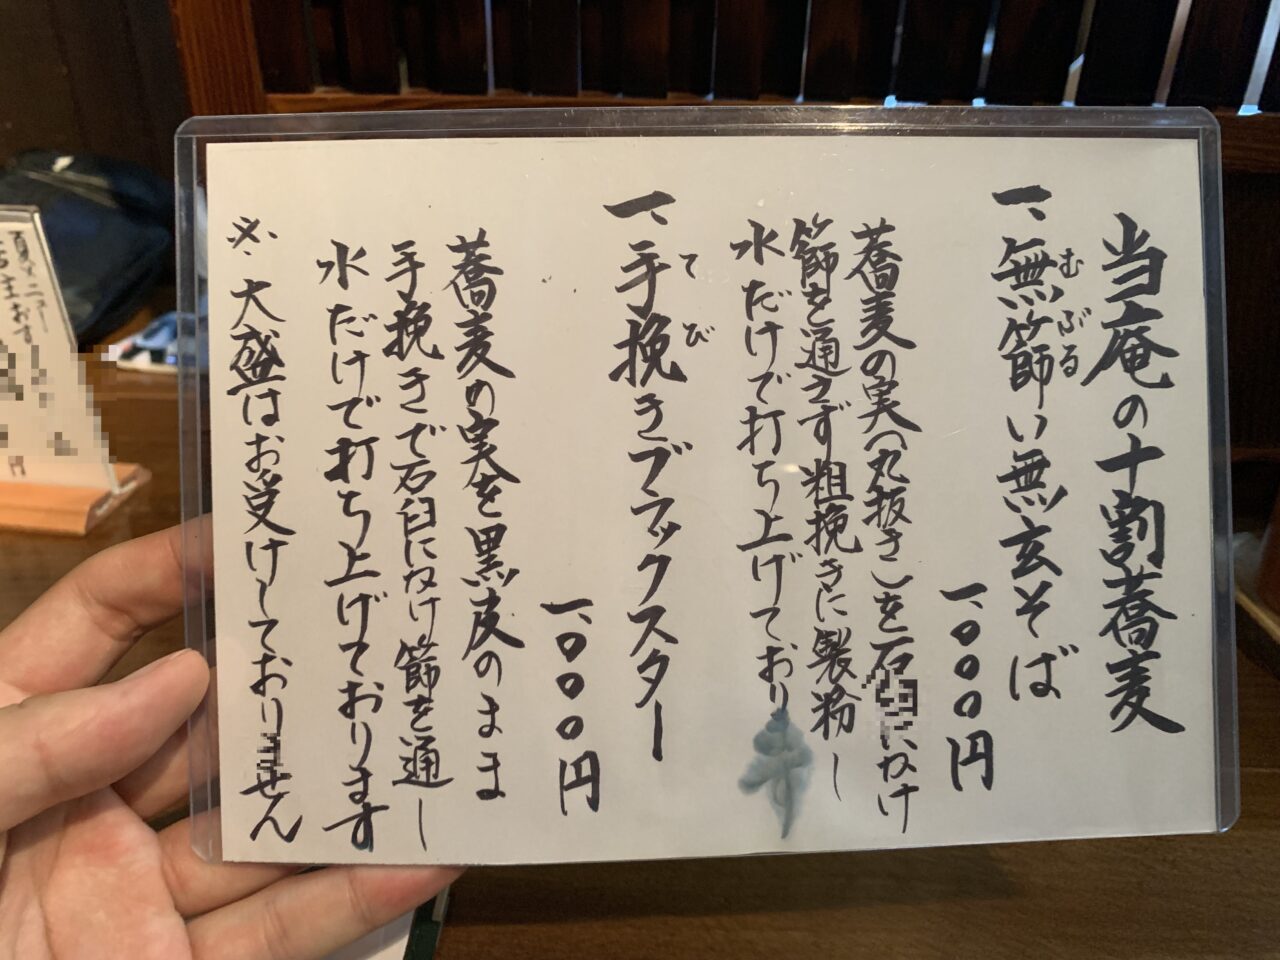 当庵の十割蕎麦
一、無篩い無玄そば
むぶる
一、〇〇〇円
蕎麦の実(丸抜き)を石 かけ
篩を通さず粗挽きに製粉し
水だけで打ち上げており
一、手挽きブラックスター
てび
一、〇〇〇円
蕎麦の実を黒皮のまま
手挽きで石臼にかけ篩を通し
水だけで打ち上げております
※大盛はお受けしておりません
夏メニュー
円